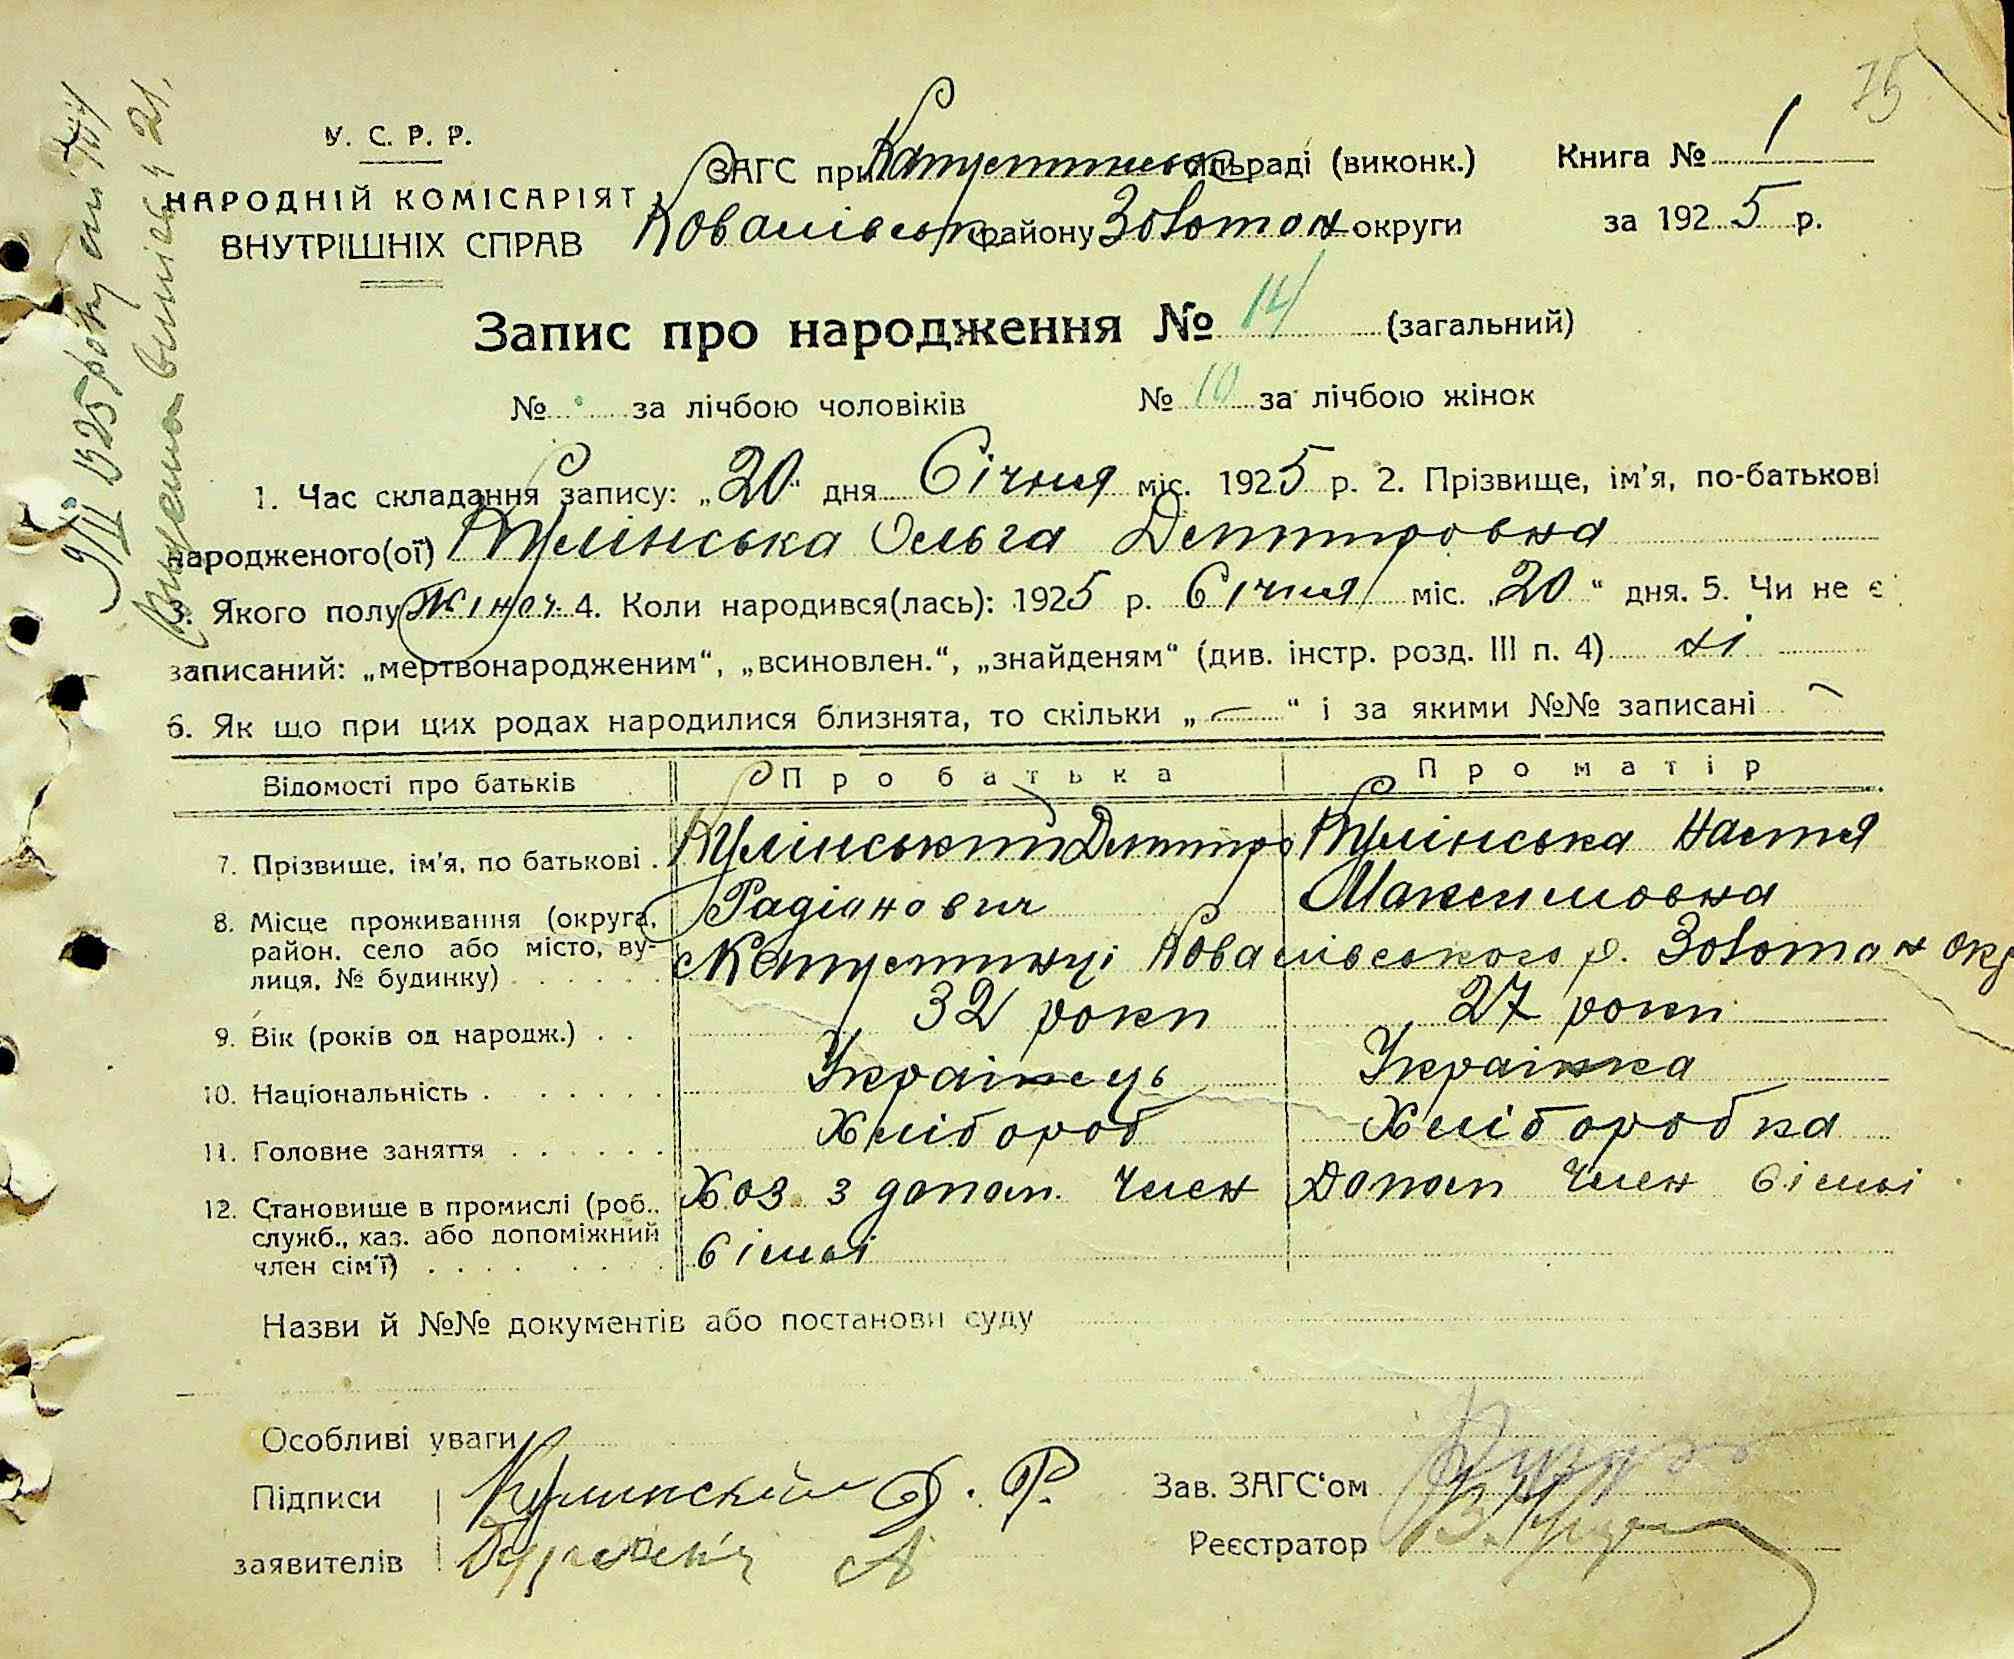 75
У. С. Р. Р.
НАРОДНІЙ КОМІСАРІЯТ
ВНУТРІШНІХ СПРАВ
ЗАГС при Капустинськ сільраді (виконк.)
Ковалівськ району Золотон округи
Книга № 1
за 1925 р.
Запис про народження № 14 (загальний)
№ за лічбою чоловіків № 10 за лічбою жінок
1. Час складання запису: „20“ дня Січня міс. 1925 р. 2. Прізвище, ім'я, по-батькові
народженого(ої) Кулінська Ольга Дмитровна
3. Якого полу жіноч. 4. Коли народився(лась): 1925 р. Січня міс. „20“ дня. 5. Чи не є
записаний: „мертвонародженим“, „всиновлен.“, „знайденям“ (див. інстр. розд. III п. 4) ні
6. Як що при цих родах народилися близнята, то скільки „—“ і за якими №№ записані —
Відомості про батьків Про батька Про матір
7. Прізвище, ім'я, по батькові . Кулінський Дмитро Кулінська Настя
Радіонович Максимовна
8. Місце проживання (округа, район, село або місто, вулиця, № будинку) с Капустинці Ковалівського р. Золотон окр
9. Вік (років од народж.) . . 32 роки 27 роки
10. Національність . Українець Українка
11. Головне заняття Хлібороб Хліборобка
12. Становище в промислі (роб., служб., хаз. або допоміжний член сім'ї) Хоз з допом. Член Сімьі Допом Член Сімьі
Назви й №№ документів або постанови суду
Особливі уваги
Підписи Кулинский Д. Р.
заявителів
Зав. ЗАГС'ом
Реєстратор
9/II 1925 року